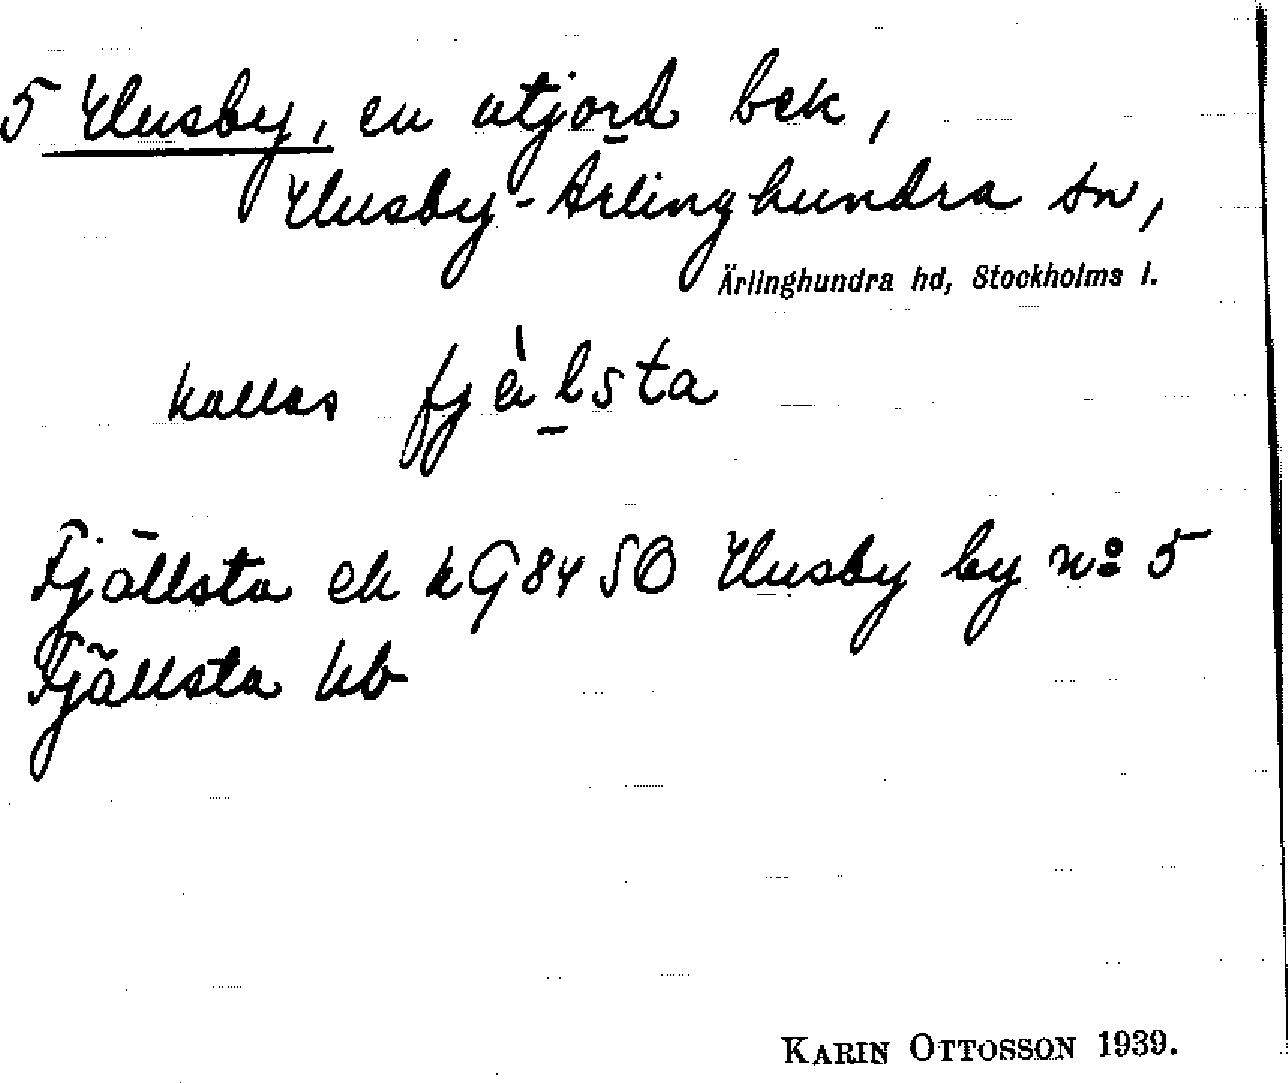 5 Husby, en utjord bek,
Husby-Ärlinghundra sn,
Ärlinghundra hd, Stockholms l.
kallas fjä̀lsta
Fjällsta ek kG 84 SO Husby by no 5
Fjällsta kb
KARIN OTTOSSON 1939.